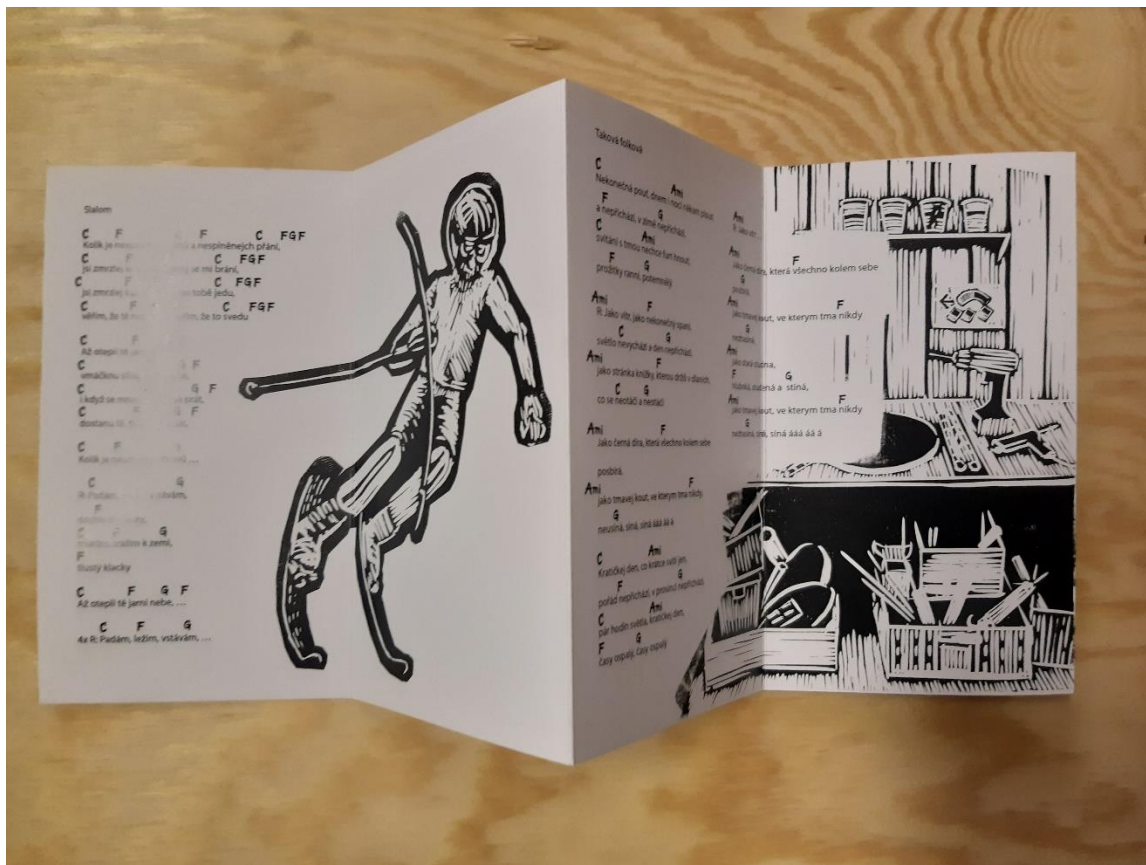 Slalom
C F C F C FGF
Kolik je a nesplněnejch přání,
C F C FGF
jsi zmrzlej se mi brání,
C F C FGF
jsi zmrzlej tobě jedu,
C F C FGF
věřím, že tě že to svedu
Až oteplí tě
C F
vmáčknu
G F
i když se
C G F
dostanu
C F
Kolik je
C G
R: Padám, vstávám,
F
C F G
k zemi,
F
tlustý klacky
C F G F
Až oteplí tě jarní nebe, ...
C F G
4x R: Padám, ležím, vstávám, ...
Taková folková
C Ami
Nekonečná pouť, dnem i nocí někam plout
F G
a nepřichází, v zimě nepřichází,
C Ami
svítání s tmou nechce furt hnout,
F G
prožitky ranní, potemnělý
Ami F
R: Jako vítr, jako nekonečný spaní,
C G
světlo nevychází a den nepřichází,
Ami F
jako stránka knížky, kterou držíš v dlaních,
C G
co se neotáčí a neotáčí
Ami F
Jako černá díra, která všechno kolem sebe
posbírá,
Ami F
jako tmavej kout, ve kterym tma nikdy
G
neusíná, síná, síná ááá áá á
C Ami
Kratičkej den, co krátce svítí jen,
F G
pořád nepřichází, v prosinci nepřichází
C Ami
pár hodin světla, kratičkej den,
F G
časy ospalý, časy ospalý
Ami
R: Jako vítr ...
Ami F
Jako černá díra, která všechno kolem sebe
G
posbírá,
Ami F
jako tmavej kout, ve kterym tma nikdy
G
neusíná,
Ami
jako stará studna,
F G
hluboká, studená a stinná,
Ami F
jako tmavej kout, ve kterym tma nikdy
G
neusíná, síná, síná ááá áá á